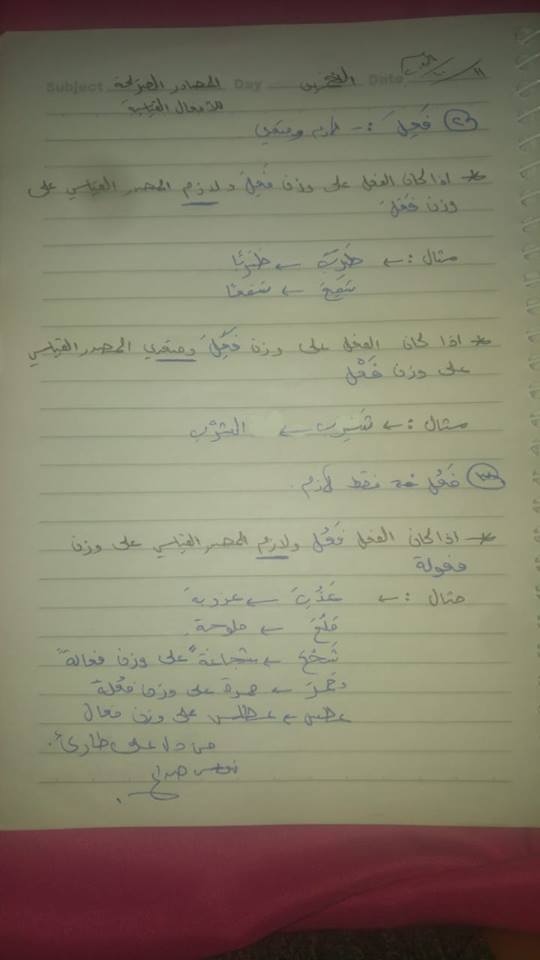 Subject المصادر الصريحة Day Date ١١
للأفعال القياسية
(٢) فَعِلَ :- لازم ومتعدي
* اذا كان الفعل على وزن فَعِلَ ولازم المصدر القياسي على
وزن فَعَلَ
مثال :← طَرِبَ ← طَرَبًا
← شفعًا
* اذا كان الفعل على وزن فَعِلَ ومتعدي المصدر القياسي
على وزن فَعْل
مثال :← شَرِبَ ← الشرْب
(٣) فَعُل فقط لازم.
* اذا كان الفعل فَعُل ولازم المصدر القياسي على وزن
فعولة
مثال :← عَذُبَ ← عذوبة
مَلُحَ ← ملوحة
شَجُعَ ← شجاعة "على وزن فعالة"
← حمرة على وزن فُعلة
على وزن فعال
دل على